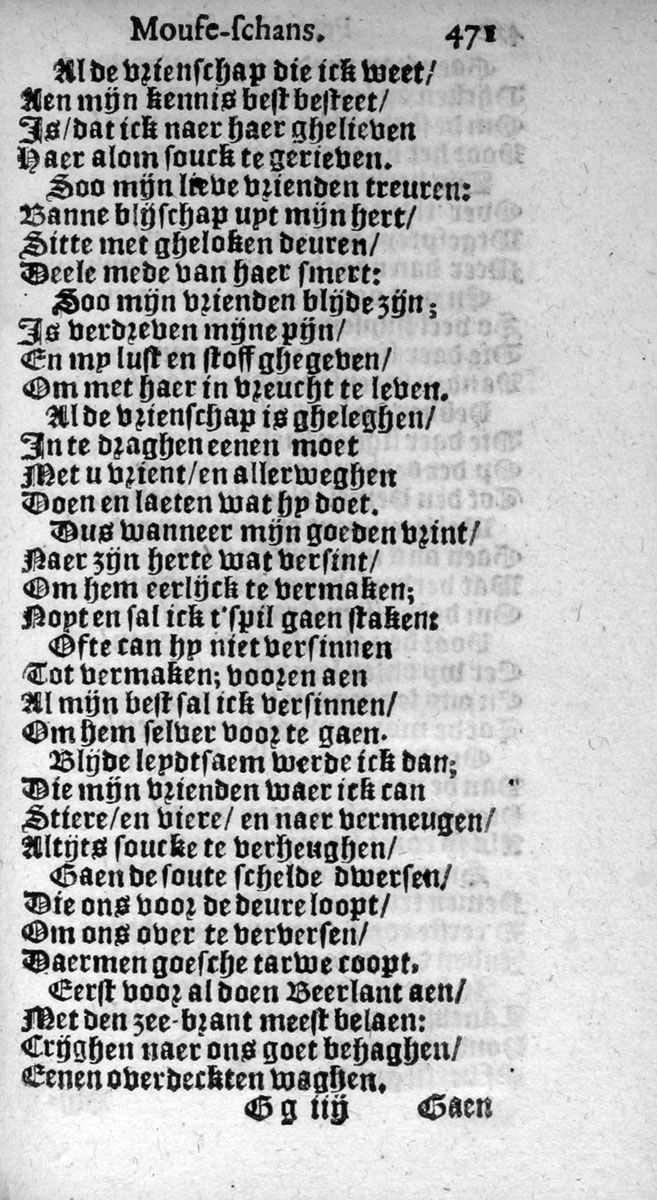 Mouse-schans. 471
Al de vrienschap die ick weet/
Aen mijn kennis best besteet/
Is/dat ick naer haer ghelieven
Haer alom souck te gerieven.
Soo mijn lieve vrienden treuren:
Banne blijschap uyt mijn hert/
Sitte met gheloken deuren/
Deele mede van haer smert:
Soo mijn vrienden blijde zijn;
Is verdreven mijne pijn/
En my lust en stoff ghegeven/
Om met haer in vreucht te leven.
Al de vrienschap is gheleghen/
In te draghen eenen moet
Met u vrient/en allerweghen
Doen en laeten wat hy doet.
Dus wanneer mijn goeden vrint/
Naer zijn herte wat versint/
Om hem eerlijck te vermaken;
Noyt en sal ick t'spil gaen staken:
Ofte can hy niet versinnen
Tot vermaken; vooren aen
Al mijn best sal ick versinnen/
Om hem selver voor te gaen.
Blijde leydtsaem werde ick dan;
Die mijn vrienden waer ick can
Stiere/en viere/ en naer vermeugen/
Altijts soucke te verheughen/
Gaen de soute schelde dwersen/
Die ons voor de deure loopt/
Om ons over te verversen/
Daermen goesche tarwe coopt.
Eerst voor al doen Beerlant aen/
Met den zee-brant meest belaen:
Crijghen naer ons goet behaghen/
Eenen overdeckten waghen.
G g iij Gaen